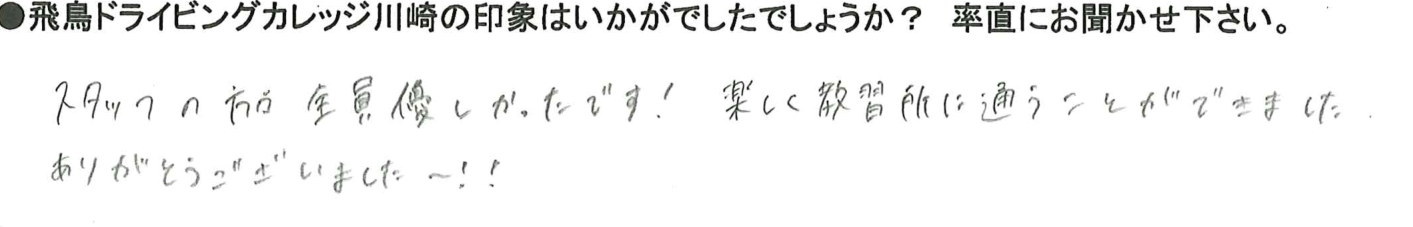 ●飛鳥ドライビングカレッジ川崎の印象はいかがでしたでしょうか？ 率直にお聞かせ下さい。
スタッフの方々全員優しかったです！ 楽しく教習所に通うことができました
ありがとうございました〜！！